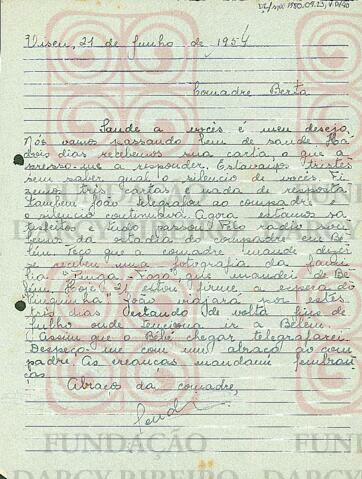 Viseu, 21 de Junho de 1954
Comadre Berta
Saude a vocês é meu desejo.
Nós vamos passando bem de saude. Ha
dois dias recebemos sua carta, o que a
presso-me a responder. Estavamos tristes
sem saber qual o silencio de vocês. Fi
zemos três cartas e nada de resposta.
Tambem João telegrafou ao compadre
e silencio continuava. Agora estamos sa
tisfeitos e tudo passou. Pelo radio sou
bemos da estadia do compadre em Be
lém. Peço que a comadre mande dizer
se recebeu uma fotografia da
"Pinga-Fogo" que mandei de Be
lém. Hoje 21 estou firme a espera do
João viajará por estes
três dias estando de volta hoje de
Julho onde tenciona ir a Belem.
Assim que o Bebê chegar telegrafarei.
Despeço-me com um abraço ao com
padre. As creanças mandam lembran
ças.
Abraços da comadre,
FUNDAÇÃO
DARCY RIBEIRO
FUNDAÇÃO
DARCY RIBEIRO